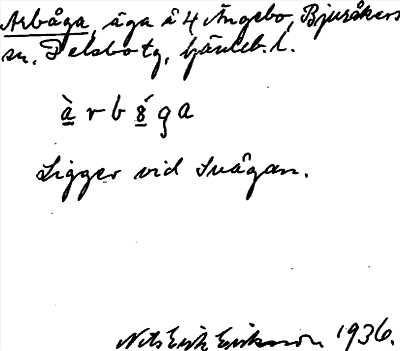 Arbåga, äga å 4 Ängebo, Bjuråkers
sn, Delsbo tg, Gävleb. l.
àrb8́ga
Ligger vid Svågan.
Nils Erik Eriksson 1936.